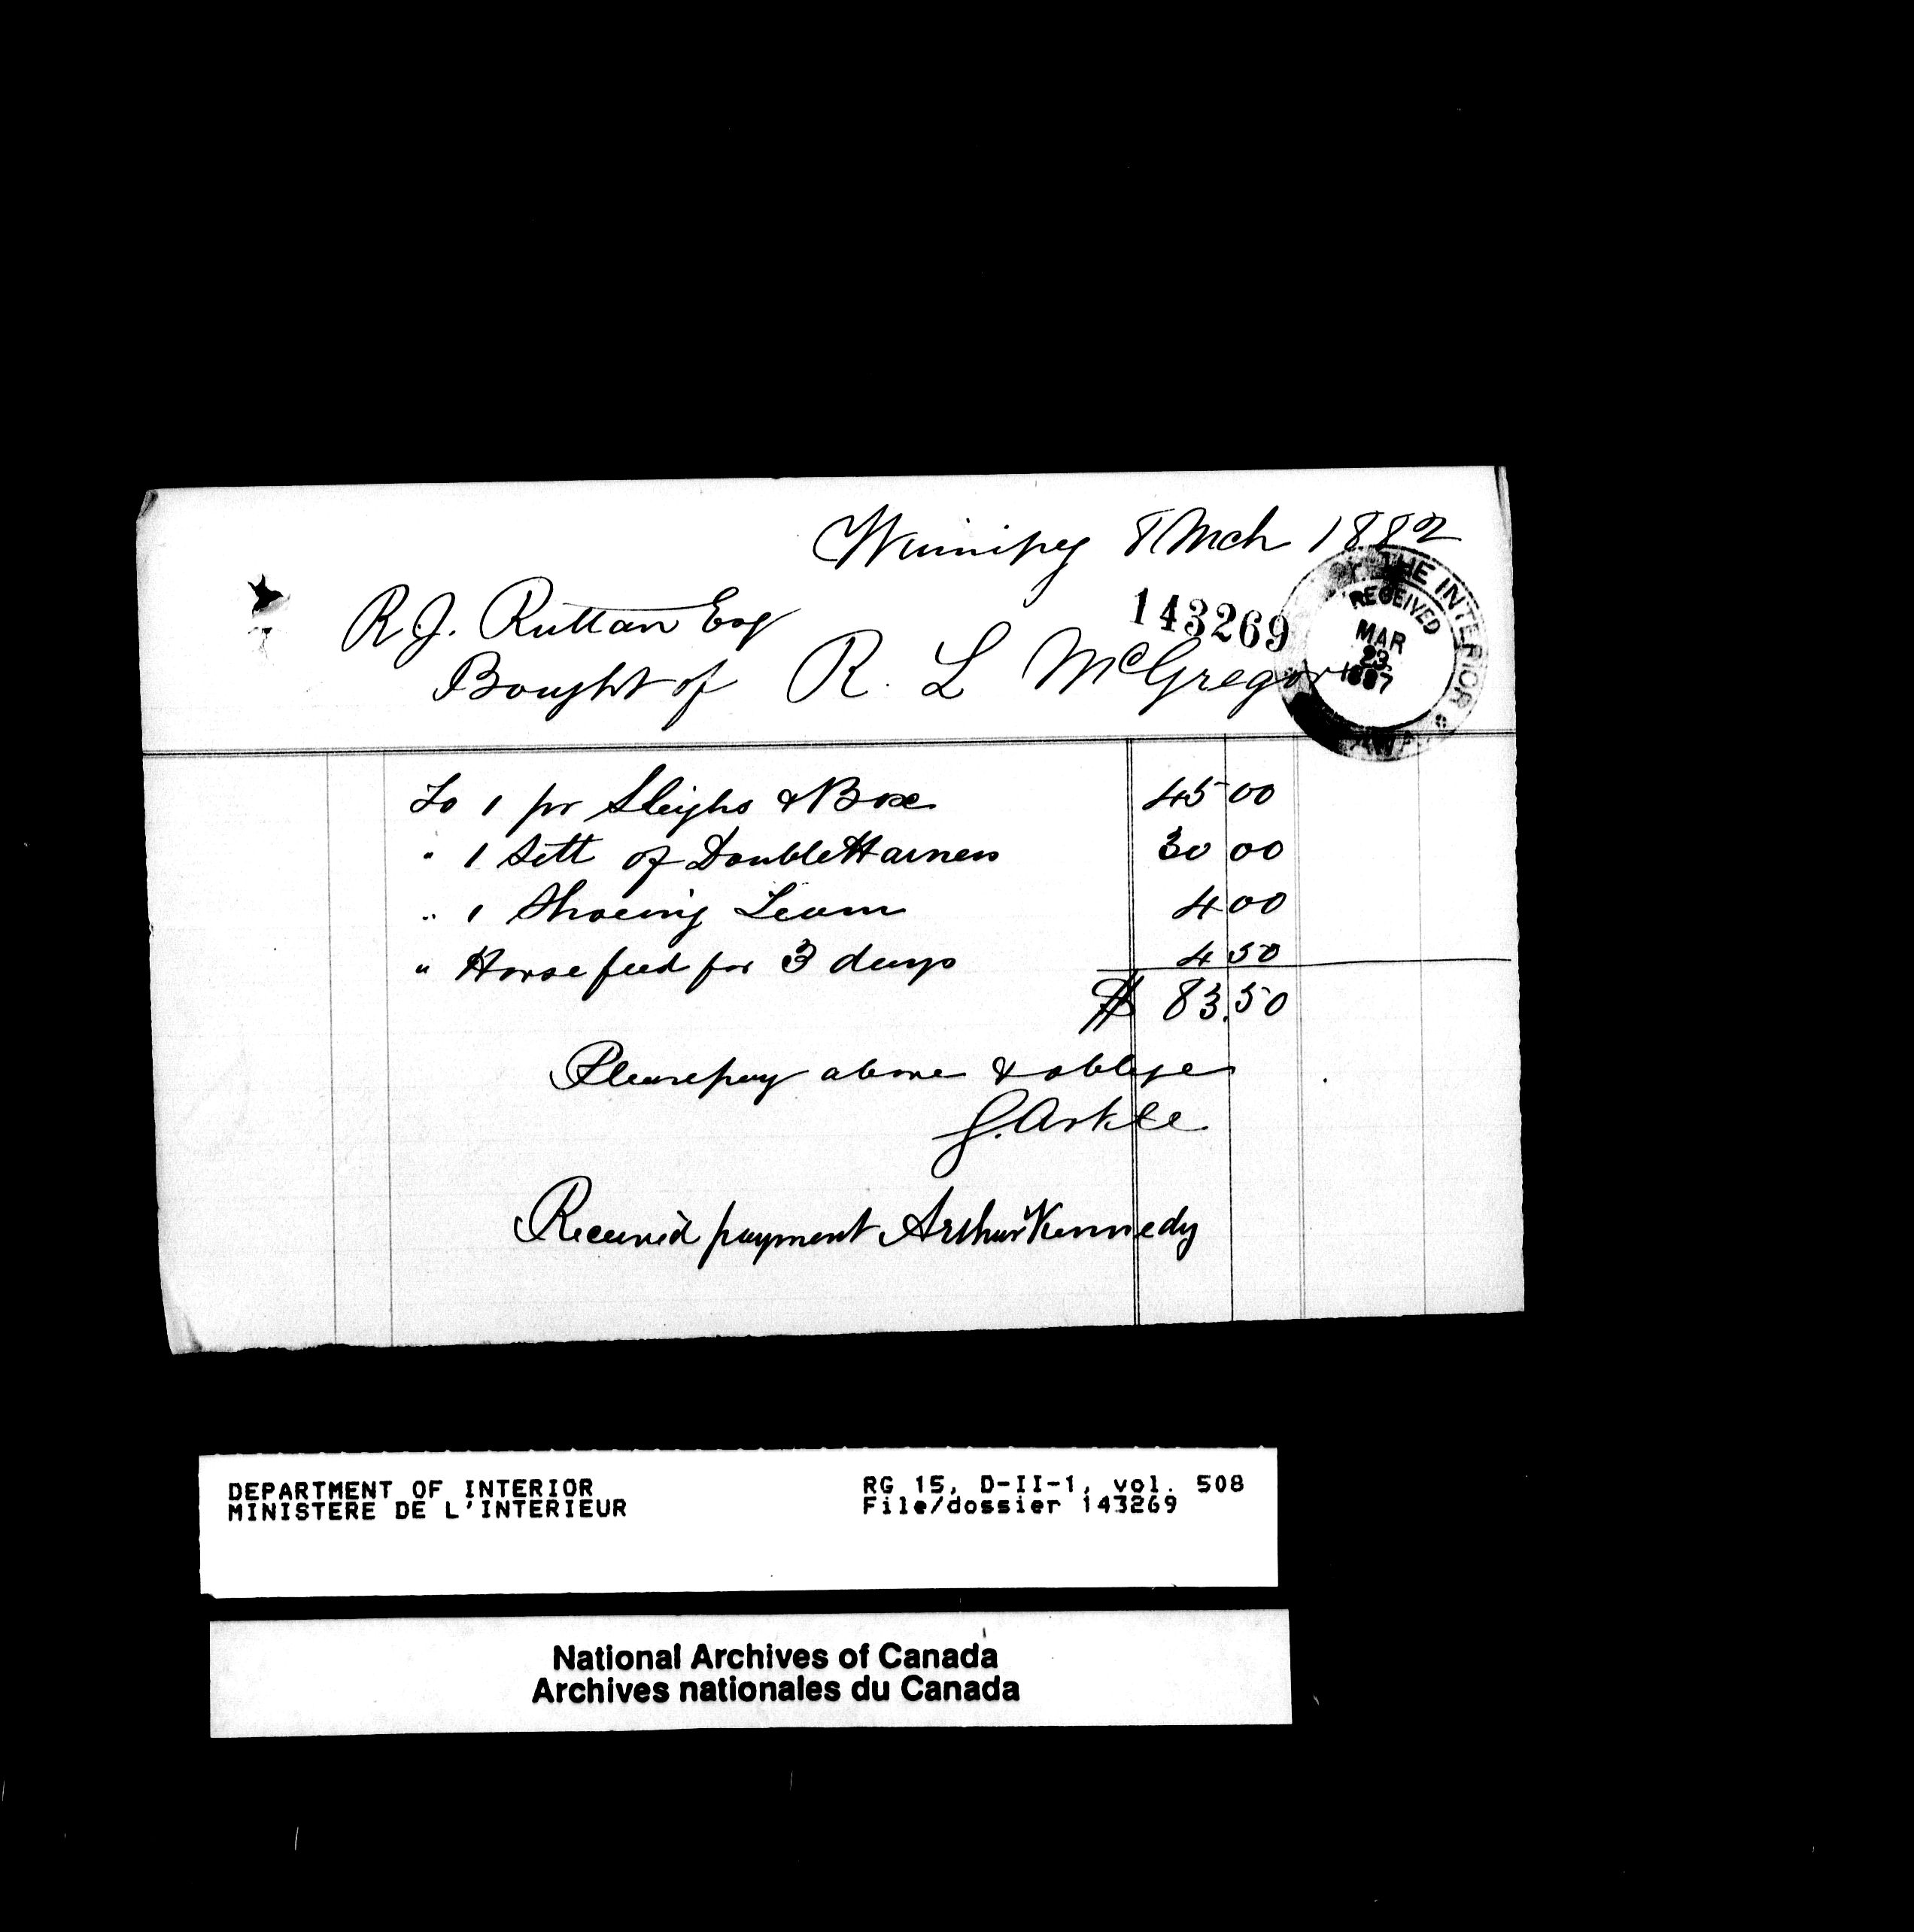 Winnipeg 8 Mch 1882
143269
THE INTERIOR
RECEIVED
MAR
23
1887
R. J. Ruttan Esq
Bought of R. L McGregor
To 1 pr Sleighs & Box 45 00
" 1 Sett of Double Harness 30 00
" 1 Shoeing Team 4 00
" Horse feed for 3 days 4 50
$ 83.50
Please pay above & oblige
G. Arkle
Received payment Arthur Kennedy
DEPARTMENT OF INTERIOR RG 15, D-II-1, vol. 508
MINISTERE DE L'INTERIEUR File/dossier 143269
National Archives of Canada
Archives nationales du Canada